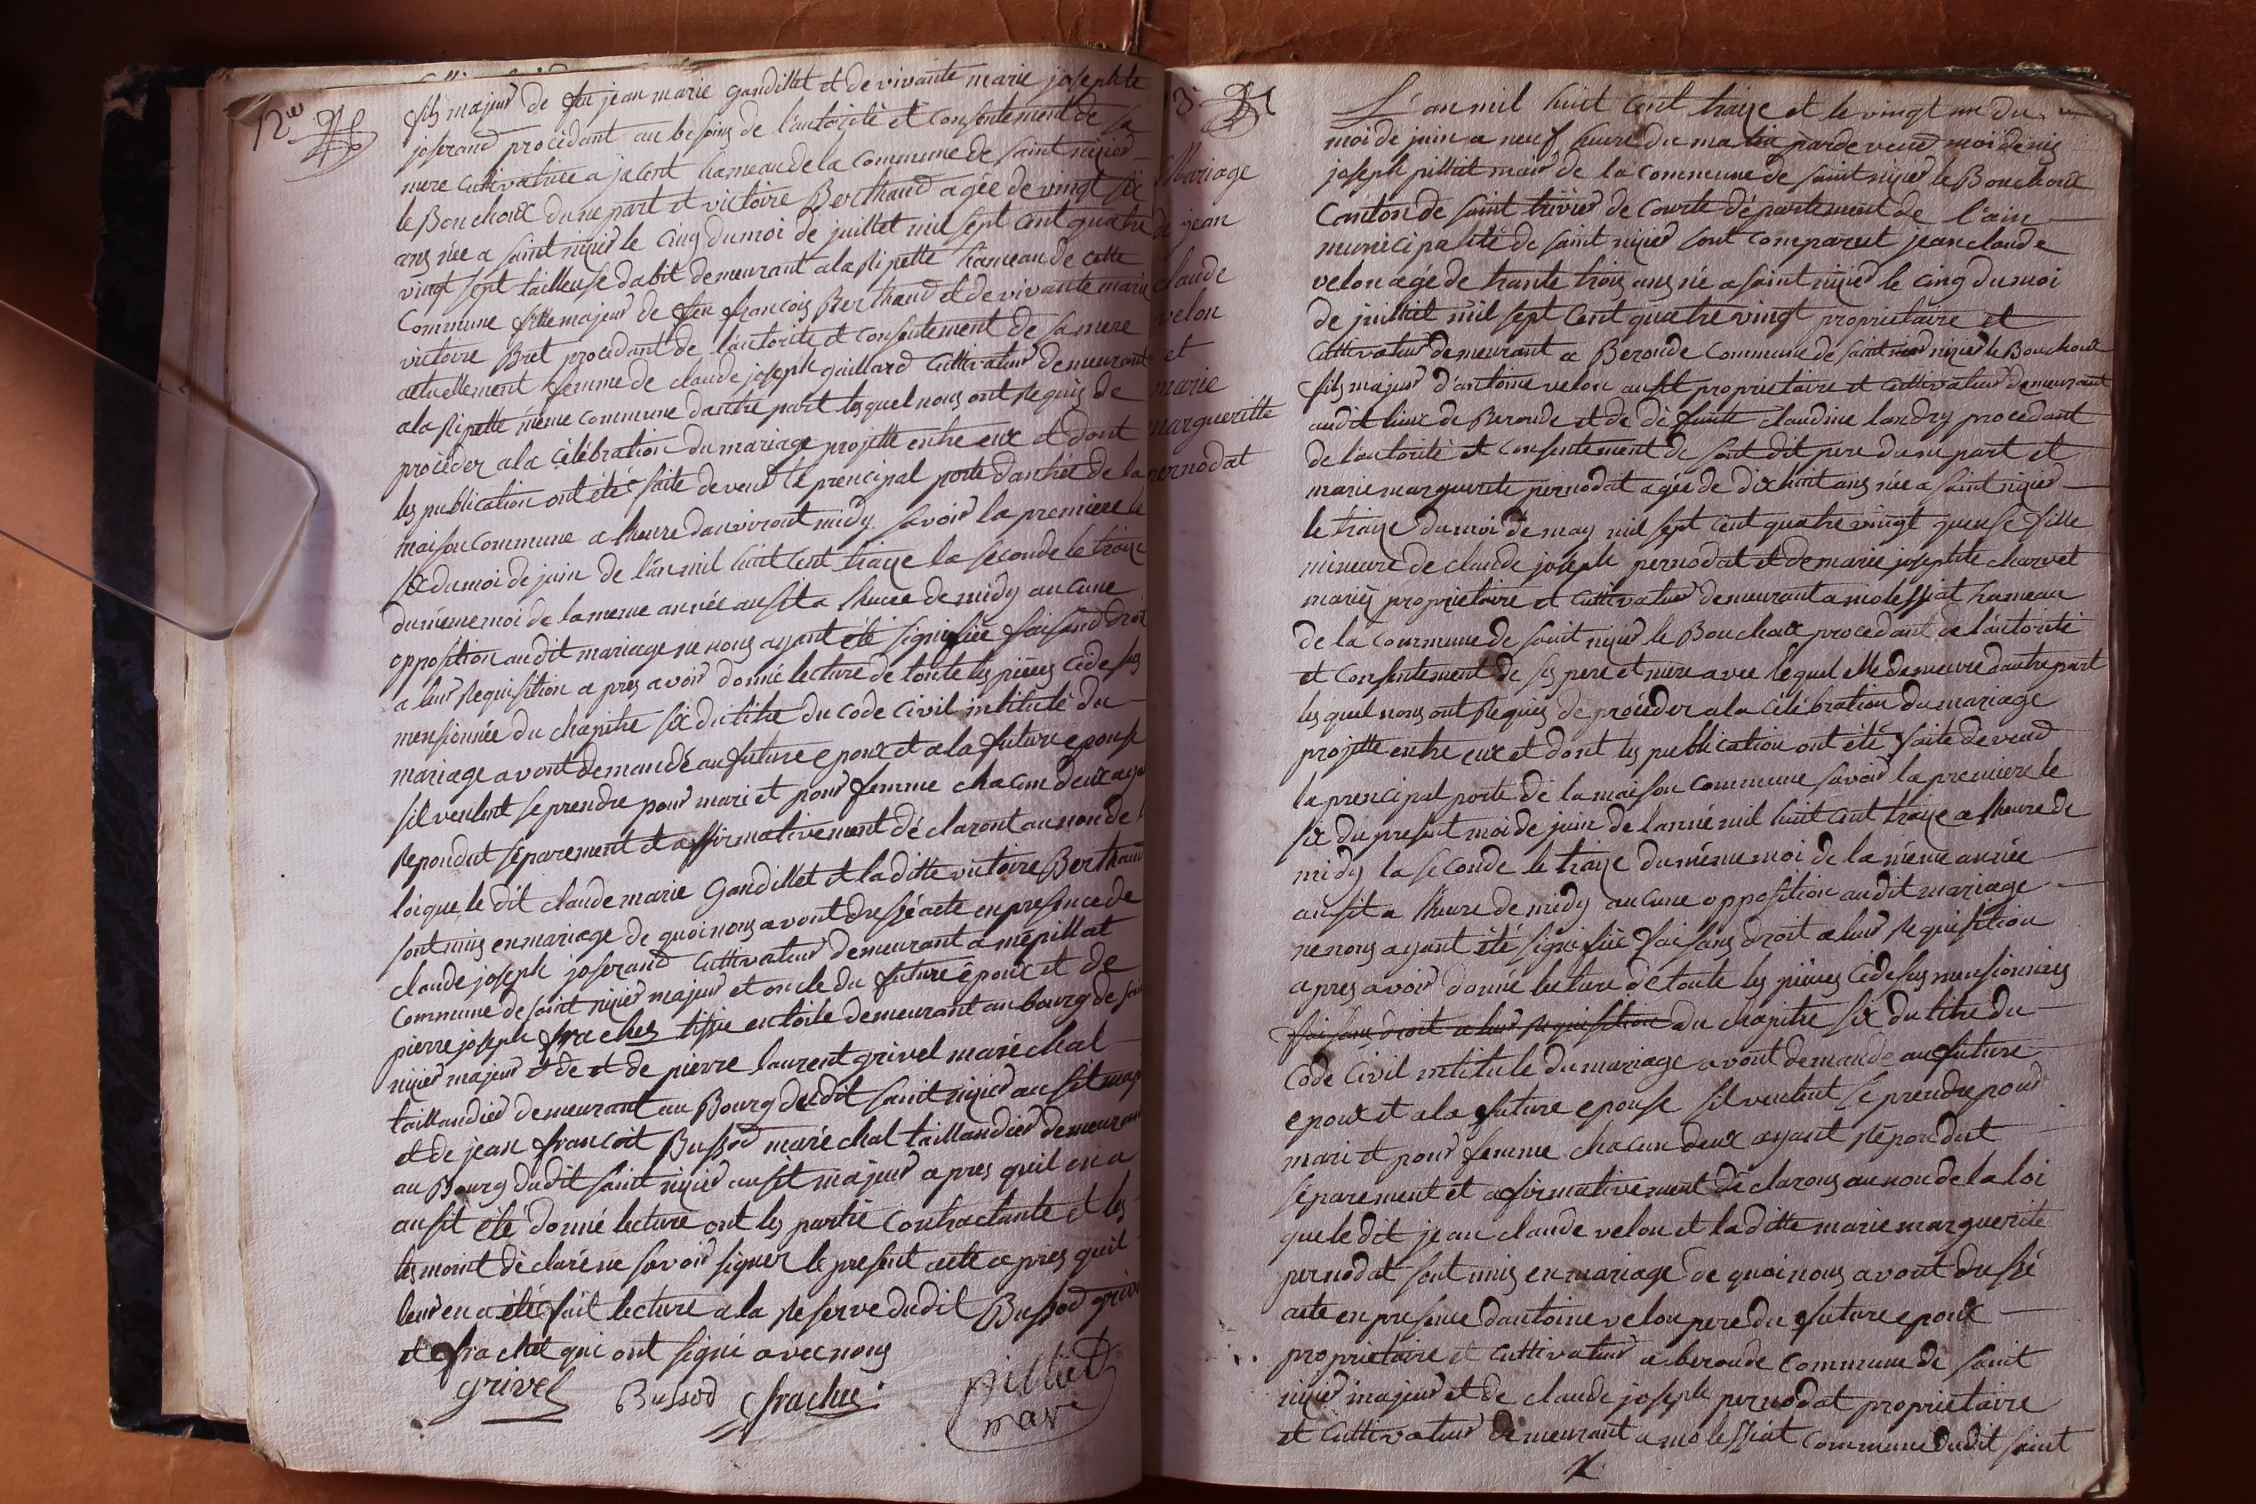 12e
fils majeur de feu jean marie gandillet et de vivante marie josephte
joserand procédant au besoins de l'autorité et consentement de sa
mere cultivatrice a jacent hameau de la commune de saint nizier
le Bouchoux dune part et victoire Berthaud agée de vingt six
ans née a saint nizier le cinq du moi de juillet mil sept cent quatre
vingt sept tailleuse dabit demeurant a la Ripette hameau de cette
commune fille majeur de feu francois Berthaud et de vivante marie
victoire Bret procédant de l'autorité et consentement de sa mere
actuellement femme de claude joseph guillard cultivateur demeurant
a la Ripette même commune dautre part lesquel nous ont Requis de
procéder a la célébration du mariage projetté entre eux et dont
les publication ont été faite devent la prencipal porte dantrée de la
maison commune a lheure danviront midy savoir la premiere le
six du moi de juin de l'an mil huit cent traize la seconde le traize
du même moi de la meme année ausit a lheure de midy aucune
opposition audit mariage ne nous ayant été signifiée faisand droit
a leur Requisition apres avoir donné lecture de toute les pièces cidesus
mensionnée du chapitre six du titre du code civil intitulé du
mariage avont demandé au future epoux et a la future epouse
sil veulent se prendre pour mari et pour femme chacun deux ayant
Repondut séparement et affirmativement déclaront au nom de la
loi que le dit claude marie Gandillet et la ditte victoire Berthaud
sont unis en mariage de quoi nous avont dressé acte en presence de
claude joseph joserand cultivateur demeurant a mépillat
commune de saint nizier majeur et oncle du future époux et de
pierre joseph frachet tissie en toile demeurant au bourg de saint
nizier majeur et de et de pierre laurent grivel maréchal
taillandier demeurant au Bourg dudit saint nizier ausit majeur
et de jean francoit Bussod maréchal taillandier demeurant
au Bourg dudit saint nizier ausit majeur apres quil en a
ausit été donné lecture ont les partie contractante et les
tesmoint déclaré ne savoir signer le present acte apres quil
leur en a été fait lecture a la Reserve dudit Bussod grivel
et frachet qui ont signé avec nous
grivel Bussod frachet pilliat
mair
Mariage
de jean
claude
velon
et
marie
margueritte
pernodat
L'an mil huit cent traize et le vingt un du
moi de juin a neuf heure du matin pardevent moi denis
joseph pilliat mair de la commune de saint nizier le Bouchoux
canton de saint trivier de courte département de l'ain
municipalité de saint nizier sont comparut jean claude
velon agé de trante trois ans né a saint nizier le cinq du moi
de juillait mil sept cent quatre vingt proprietaire et
cultivateur demeurant a Beronde commune de saint nizier le Bouchoux
fils majeur d'antoine velon ausit proprietaire et cultivateur demeurant
audit lieux de Beronde et de défunte claudine landry procédant
de l'autorité et consentement de sont dit pere dune part et
marie marguerite pernodat agée de dix huit ans née a saint nizier
le traize du moi de may mil sept cent quatre vingt queuse fille
mineure de claude joseph pernodat et de marie josephte charvet
mariés proprietaire et cultivateur demeurant a molessiat hameau
de la commune de saint nizier le Bouchoux procédant de l'autorité
et consentement de ses pere et mere avec lequel elle demeure dautre part
les quel nous ont Requis de procéder a la célébration du mariage
projetté entre eux et dont les publication ont été faite devend
la prencipal porte de la maison commune savoir la premiere le
six du present moi de juin de lanné mil huit cent traize a lheure de
midy la seconde le traize du même moi de la même année
ausit a lheure de midy aucune opposition audit mariage
ne nous ayant été signifiée faisans droit a leur Requisition
apres avoir donné lecture de toute les pièces cidesus mensionnées
faisans droit a leur Requisition du chapitre six du titre du
code civil intitulé du mariage avont demandé au future
epoux et a la future epouse sil veulent se prendre pour
mari et pour femme chacun deux ayant Répondut
séparement et afirmativement déclarons au nom de la loi
que le dit jean claude velon et la ditte marie marguerite
pernodat sont unis en mariage de quoi nous avont dressé
acte en presence dantoine velon pere du future epoux
proprietaire et cultivateur a beronde commune de saint
nizier majeur et de claude joseph pernodat proprietaire
et cultivateur demeurant a molessiat commune dudit saint